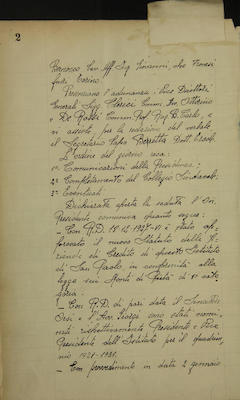 2
Bernocco Cav. Uff. Ing. Giovanni, che
fu di Torino.
Presenziano l'adunanza i Vice Direttori
Generali Sigg. Clerici Comm. Avv. Ottorino
e De Rossi Comm. Prof. Rag. B. Carlo, e
vi assiste, per la redazione del verbale
il Segretario Capo Beretta Dott.
L'ordine del giorno reca:
1° Comunicazioni della Presidenza;
2° Completamento del Collegio Sindacale;
3° Eventuali.
Dichiarata aperta la seduta l'On.
Presidente comunica quanto segue:
- Con R.D. 15.12.1927 è stato ap-
provato il nuovo Statuto della A-
zienda di Credito di questo Istituto
di San Paolo in conformità alla
legge sui Monti di Pietà di 1ª cate-
goria.
- Con R.D. di pari data il Senatore
Orsi e l'Avv. Giorgi sono stati nomi-
nati rispettivamente Presidente e Vice
Presidente dell'Istituto per il quadrien-
nio 1928-1931.
- Con provvedimento in data 2 gennaio